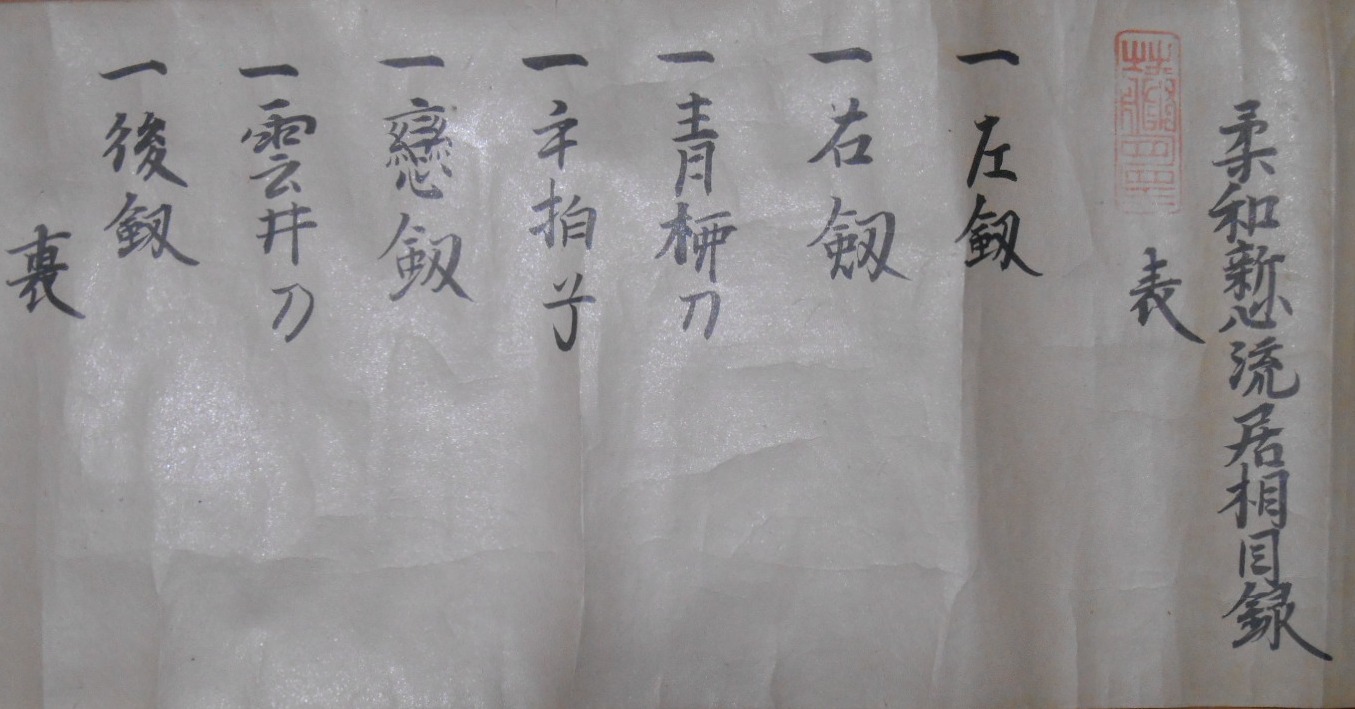 柔和新心流居相目録
表
一左釼
一右劔
一青柳刀
一手拍子
一戀釼
一雲井刀
一後釼
裏